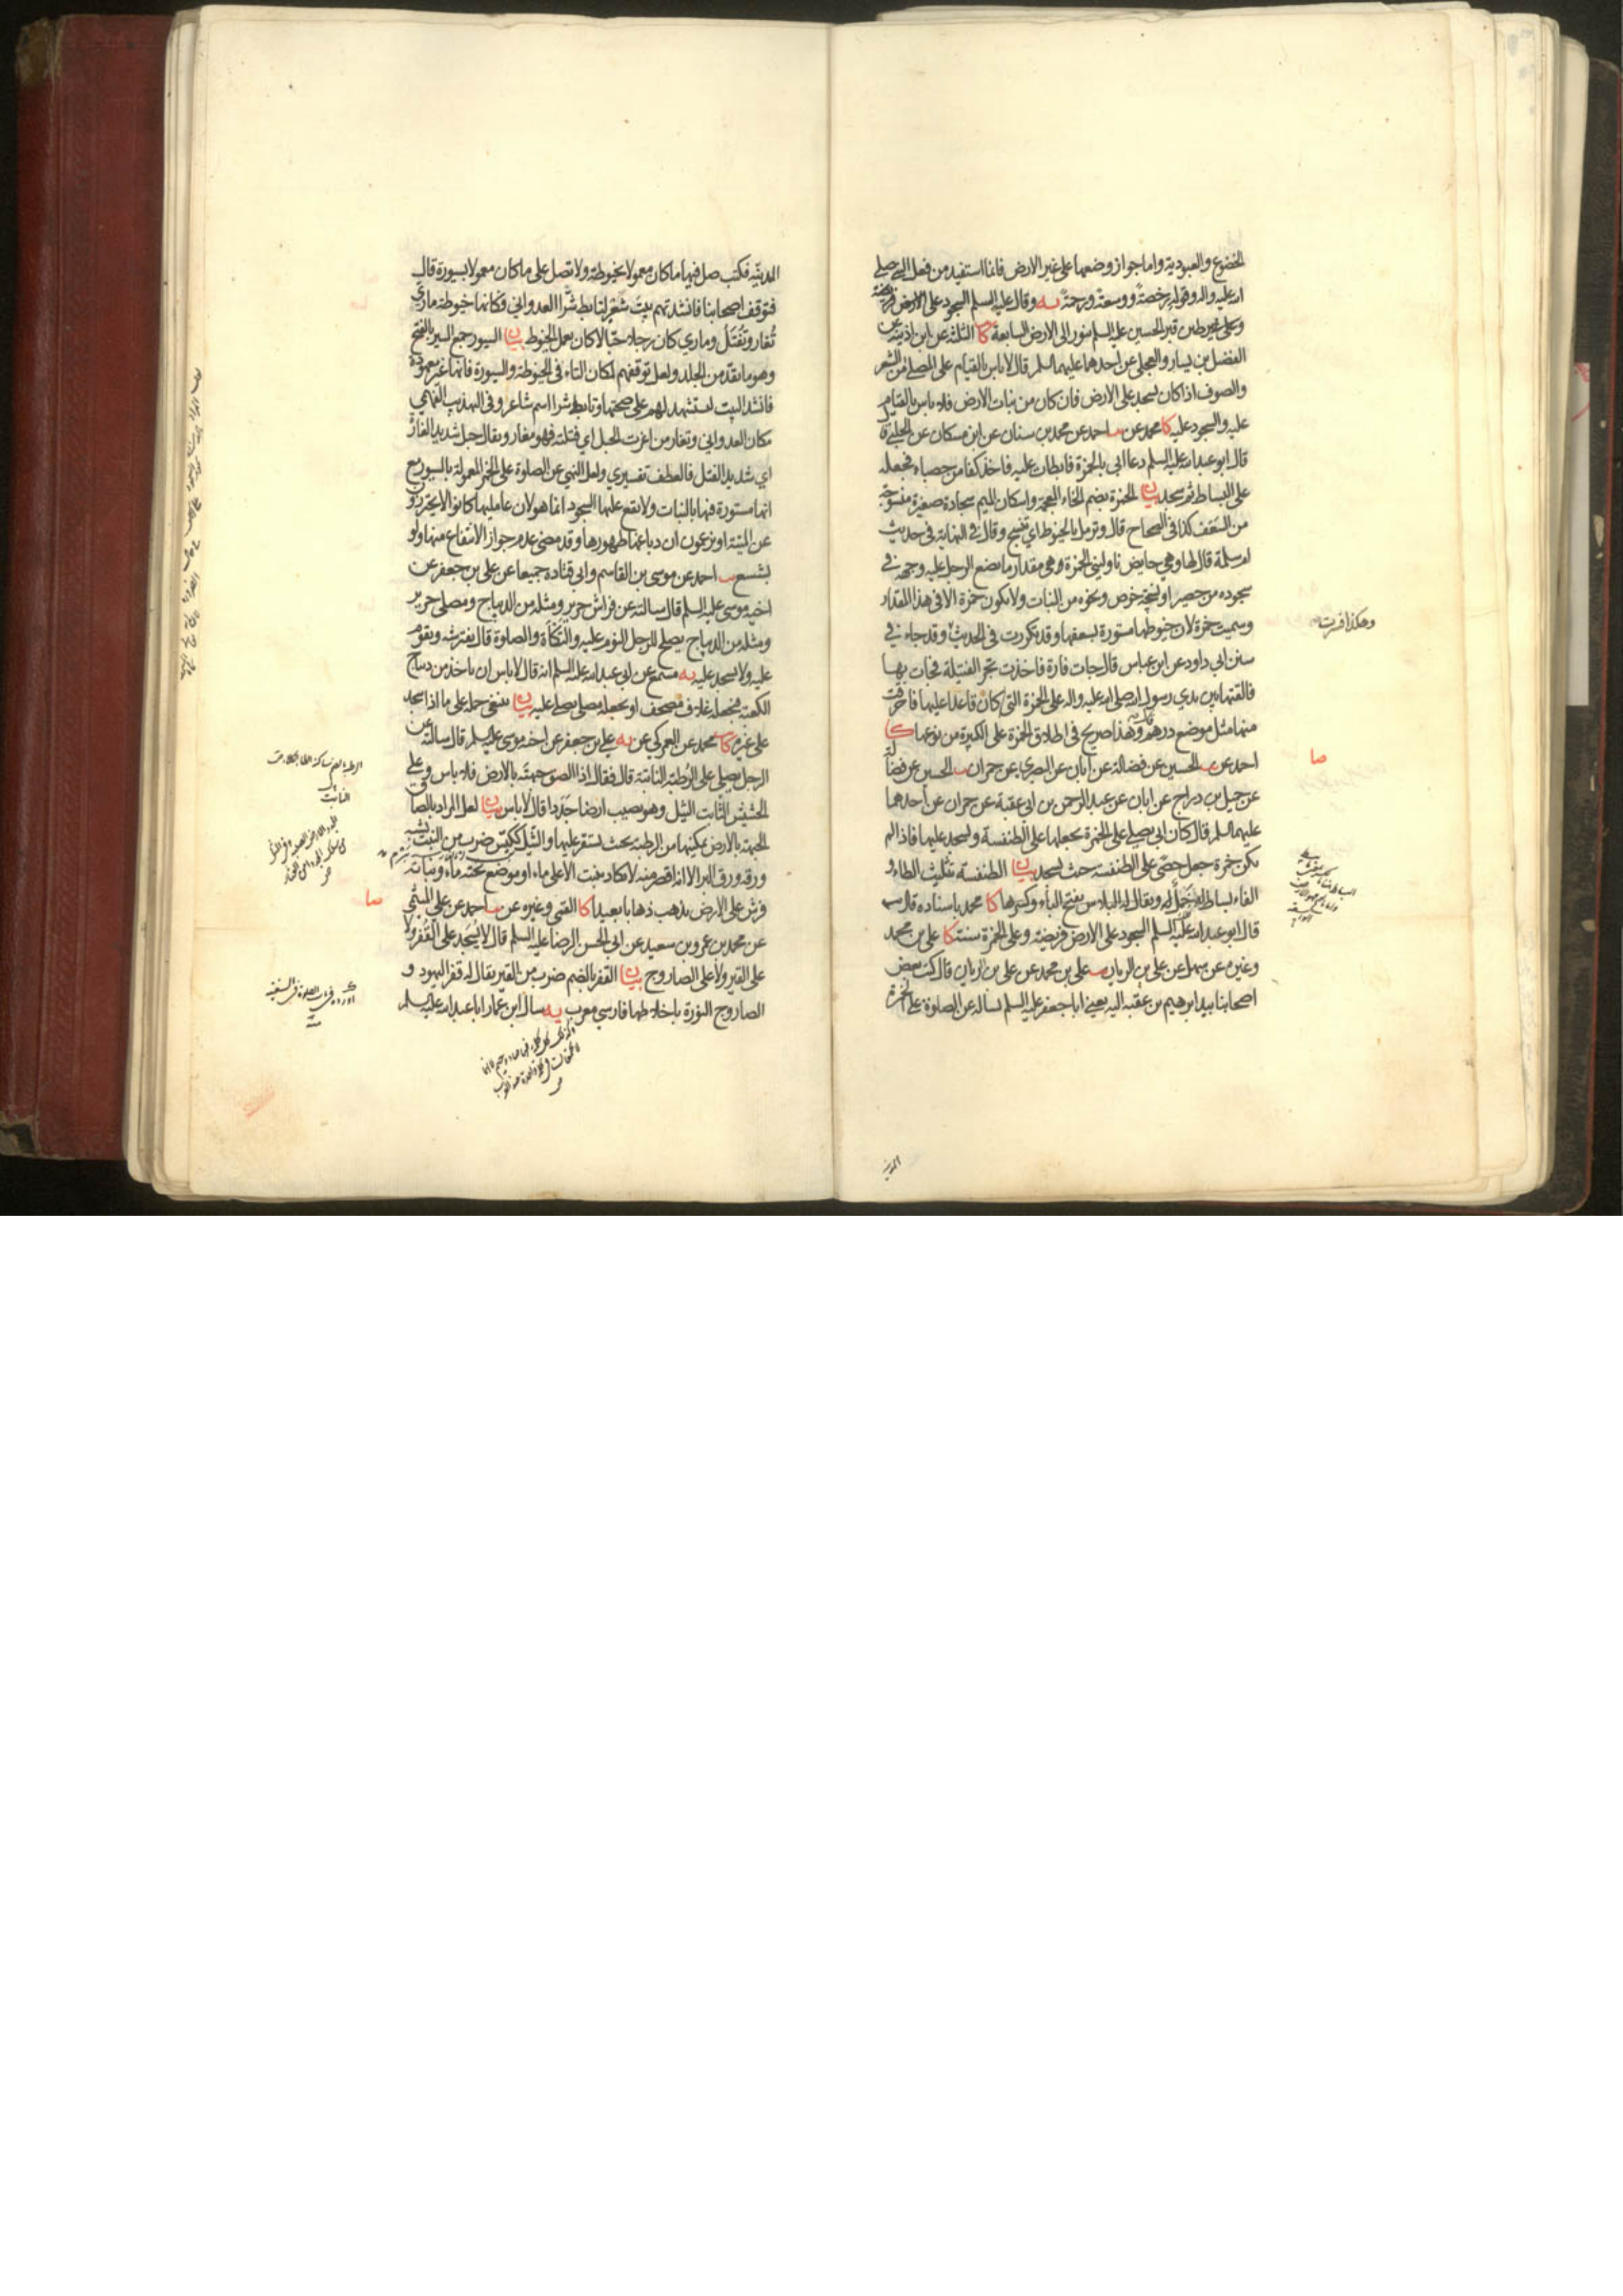 الخضوع والعبودية واما جواز وضعها على غير الارض فانما استفيد من فعل النبي صلى
الله عليه واله وقوله رخصة ووسعة ورحمة يه وقال عليه السلم السجود على الارض فريضة
وعلى غير طين قبر الحسين عليه السلم ينور الى الارض السابعة كا الثلثة عن ابن اذينة عن
الفضيل بن يسار والعجلي عن احدهما عليهما السلم قال لا باس بالقيام على المصلى من الشعر
والصوف اذا كان يسجد على الارض فان كان من نبات الارض فلا باس بالقيام
عليه والسجود عليه كا محمد عن احمد عن محمد بن سنان عن ابن مسكان عن الحلبي قال
قال ابو عبد الله عليه السلم دعا ابي بالخمرة فابطات عليه فاخذ كفا من حصباء فجعله
على البساط ثم سجد بيان الخمرة بضم الخاء المعجمة واسكان الميم سجادة صغيرة منسوجة
من السعف كذا في الصحاح قال وترمل بالخيوط اي تنسج وقال في النهاية في حديث
ام سلمة قال لها وهي حايض ناوليني الخمرة وهي مقدار ما يضع الرجل عليه وجهه في
سجوده من حصير او نسيجة خوص ونحوه من النبات ولا يكون خمرة الا في هذا المقدار
وسميت خمرة لان خيوطها مستورة بسعفها وقد تكررت في الحديث وقد جاء في
وهكذا فسرت
سنن ابي داود عن ابن عباس قال جات فارة فاخذت تجر الفتيلة فجات بها
فالقتها بين يدي رسول الله صلى الله عليه واله على الخمرة التي كان قاعدا عليها فاحرقت
منها مثل موضع درهم قال وهذا صريح في اطلاق الخمرة على الكبيرة من نوعها كا
صا
احمد عن الحسين عن فضالة عن ابان عن البصري عن حمران الحسين عن فضالة
عن جميل بن دراج عن ابان عن عبد الرحمن بن ابي عقبة عن حمران عن احدهما
عليهما السلم قال كان ابي يصلي على الخمرة يجعلها على الطنفسة ويسجد عليها فاذا لم
يكن خمرة جعل حصى على الطنفسة حيث يسجد بيان الطنفسة بتثليث الطاء و
الفاء بساط له خمل ويقال له البلاس بفتح الباء وكسرها كا محمد باسناده قال
قال ابو عبد الله عليه السلم السجود على الارض فريضة وعلى الخمرة سنة كا علي بن محمد
وغيره عن سهل عن علي بن الريان علي بن محمد عن علي بن الريان قال كتب بعض
اصحابنا بيد ابرهيم بن عقبة اليه يعني ابا جعفر عليه السلم يساله عن الصلوة على الخمرة
المدنية
المدنية فكتب صل فيها ما كان معمولا بخيوطة ولا تصل على ما كان معمولا بسيورة قال
فتوقف اصحابنا فانشدتهم بيت شعر لتابط شرا العدواني وكانها خيوطة ماري
تغار وتفتل وماري كان رجلا حبالا كان يعمل الخيوط بيان السيور جمع السير بالفتح
وهو ما يقد من الجلد ولعل توقفهم لمكان التاء في الخيوطة والسيورة فانها غير معهودة
فانشد البيت ليستشهد لهم على صحتها وتابط شرا اسم شاعر وفي التهذيب الفهمي
مكان العدواني وتغار من اغرت الحبل اي فتلته فهو مغار ويقال حبل شديد الغارة
اي شديد الفتل فالعطف تفسيري ولعل النهي عن الصلوة على الخمر المعمولة بالسيور مع
انها مستورة فيها بالنبات ولا يقع عليها السجود انما هو لان عامليها كانوا لا يحترزون
عن الميتة او يزعمون ان دباغها طهورها وقد مضى عدم جواز الانتفاع منها ولو
بشسع احمد عن موسى بن القاسم وابي قتادة جميعا عن علي بن جعفر عن
اخيه موسى عليه السلم قال سالته عن فراش حرير ومثله من الديباج ومصلى حرير
ومثله من الديباج يصلح للرجل النوم عليه والتكأة والصلوة قال يفترشه ويقوم
عليه ولا يسجد عليه يه مسمع عن ابي عبد الله عليه السلم انه قال لا باس ان ياخذ من ديباج
الكعبة فيجعله غلاف مصحف او يجعله مصلى يصلي عليه بيان ينبغي حمله على ما اذا سجد
على غيره كا محمد عن العمركي عن يه علي بن جعفر عن اخيه موسى عليه السلم قال سالته عن
الرجل يصلي على الرطبة النابتة قال فقال اذا الصق جبهته بالارض فلا باس وعلى
الحشيش النابت الثيل وهو يصيب ارضا جددا قال لا باس بيان لعل المراد بالصاق
الجبهة بالارض تمكينها من الرطبة بحيث تستقر عليها والثيل ككيس ضرب من النبت يشبه
ورقه ورق البر الا انه اقصر منه لا يكاد ينبت الا على ماء او موضع تحته ماء ونباته
فرش على الارض يذهب ذهابا بعيدا كا القمي وغيره عن احمد عن علي الميثمي
صا
عن محمد بن عمرو بن سعيد عن ابي الحسن الرضا عليه السلم قال لا يسجد على القفر ولا
على القير ولا على الصاروج بيان القفر بالضم ضرب من القير يقال له قفر اليهود و
الصاروج النورة باخلاطها فارسي معرب يه سال ابن عمار ابا عبد الله عليه السلم